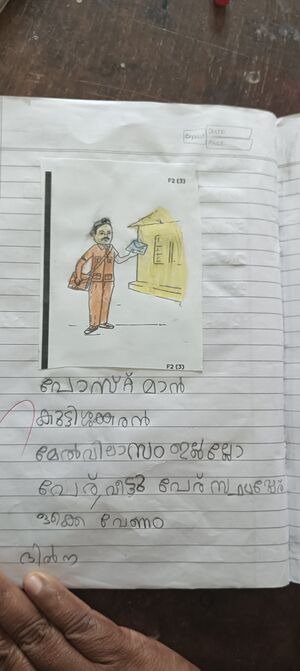 DATE
PAGE
F2 (3)
F2 (3)
പോസ്റ്റ് മാൻ
കുട്ടിശങ്കരൻ
മേൽവിലാസം ഇല്ലല്ലോ
പേര്, വീട്ടു പേര്
ഒക്കെ വേണം
ദിൽന